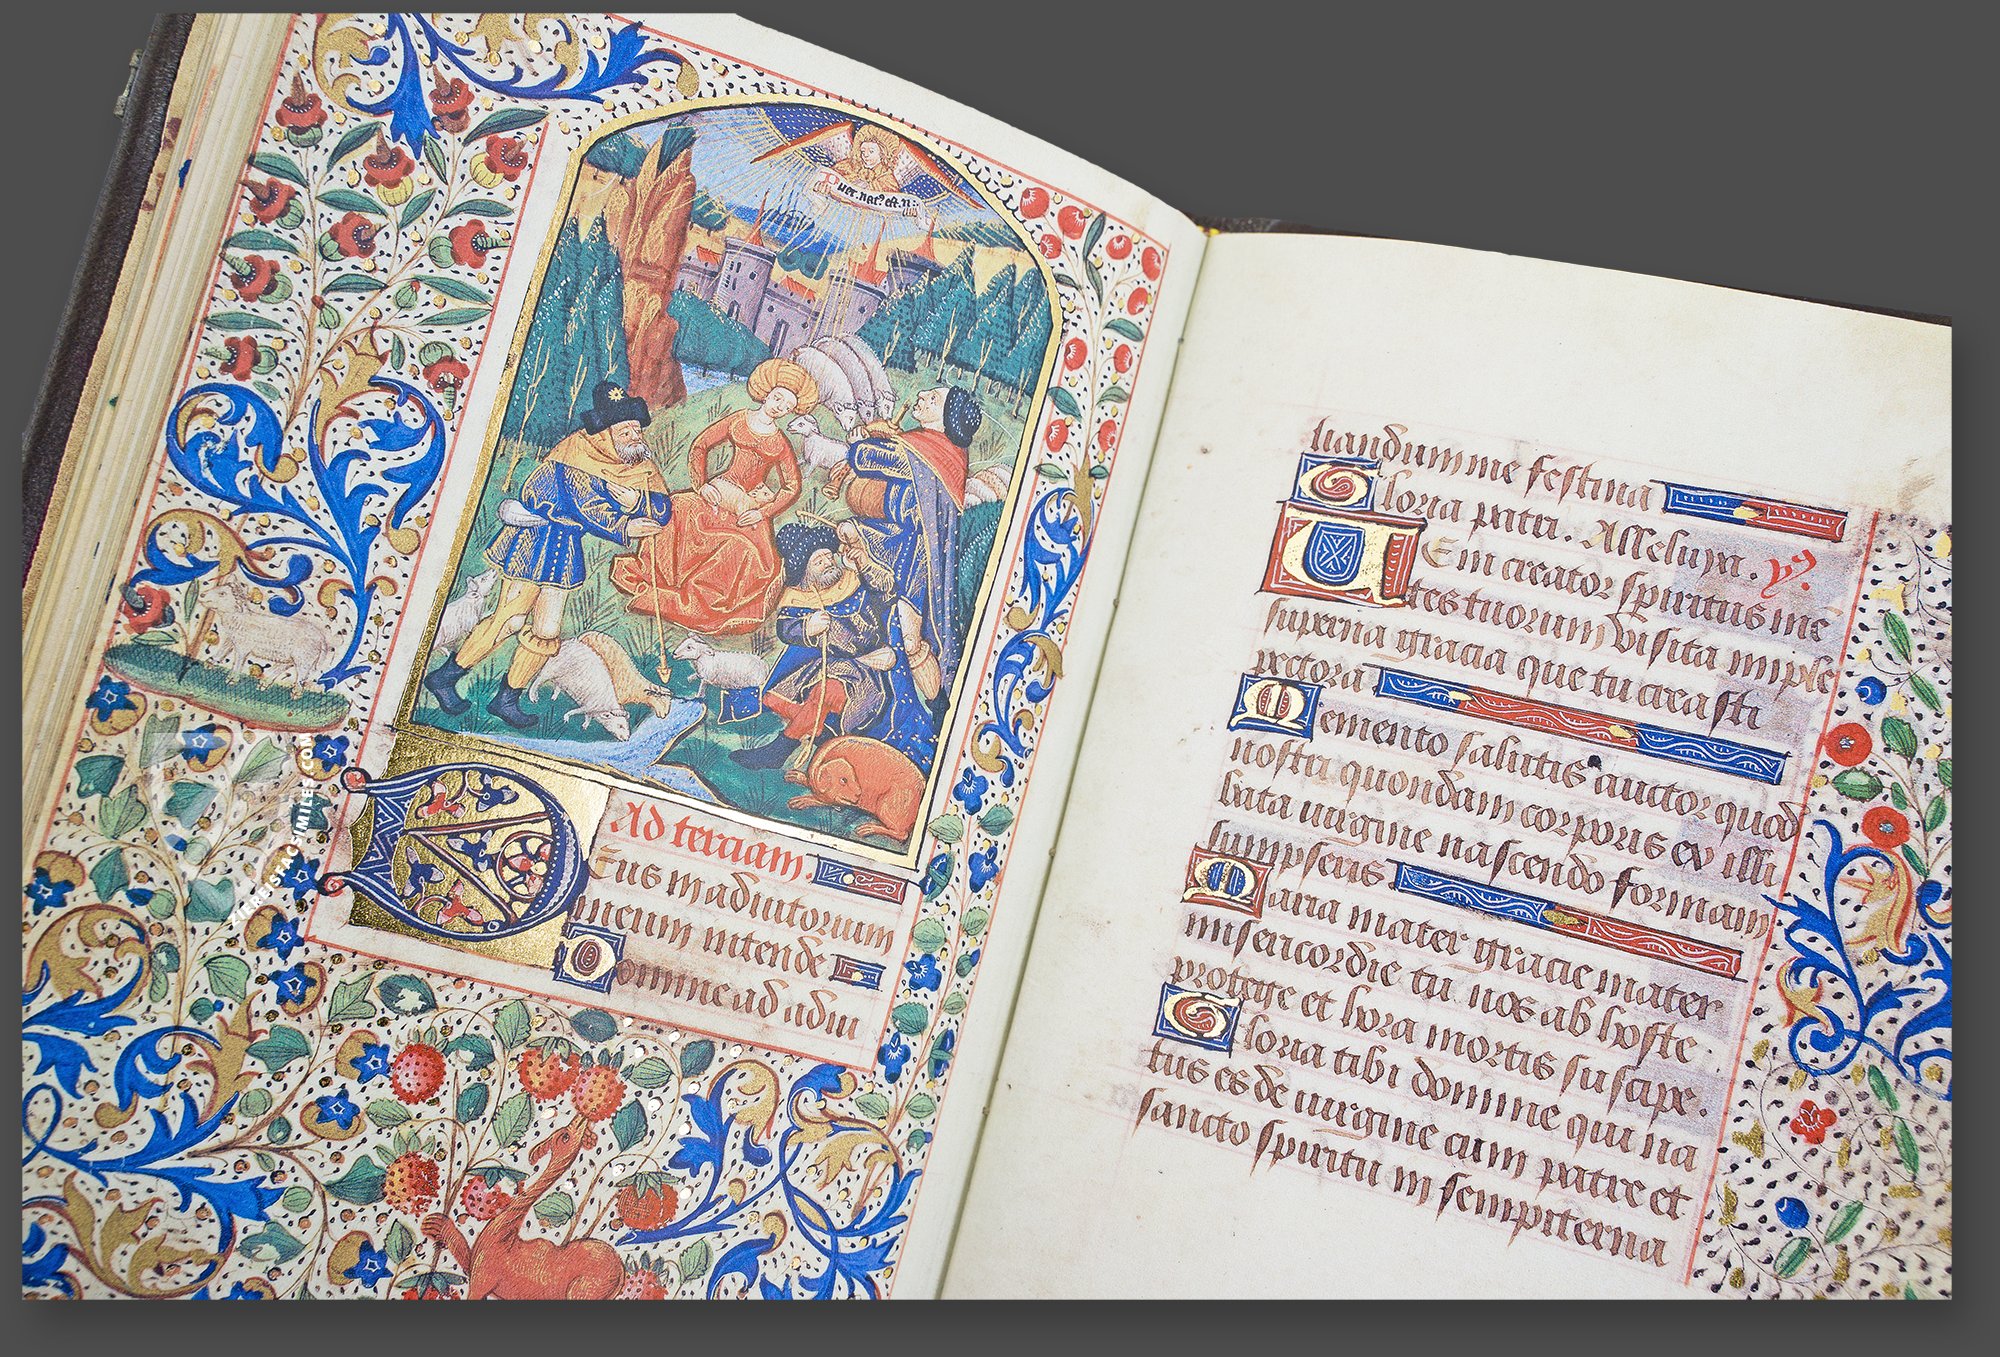 Puer . nat⁹ . est . n
Ad terciam.
Deus in adiutorium
meum intende
Domine ad adiu
uandum me festina
Gloria patri. Alleluya. ys.
Uem creator spiritus mē
tes tuorum visita imple
superna gracia que tu creasti
pectora
Memento salutis auctor quod
nostri quondam corporis ex illi
bata uirgine nascendo formam
sumpseris
Maria mater gracie mater
misericordie tu nos ab hoste
protege et hora mortis suscipe.
Gloria tibi domine qui na
tus es de uirgine cum patre et
sancto spiritu in sempiterna
ZIEREIS FACSIMILES.COM